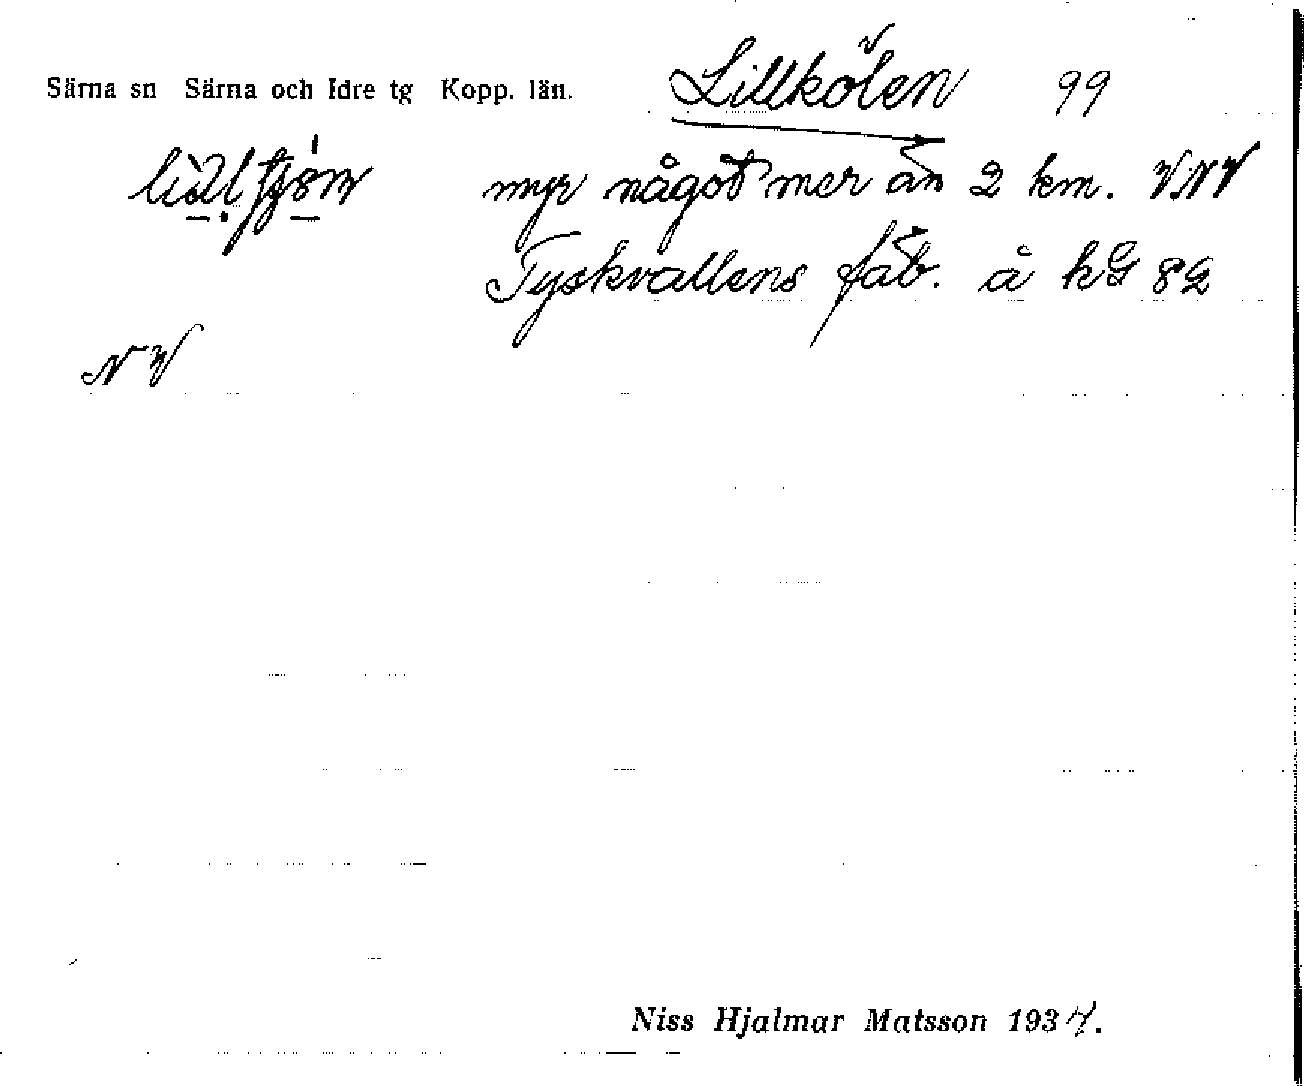 Särna sn Särna och Idre tg Kopp. län. Lillkölen 99
myr något mer än 2 km. VNV
Tyskvallens fäb. å kG 82
NV
Niss Hjalmar Matsson 1934.